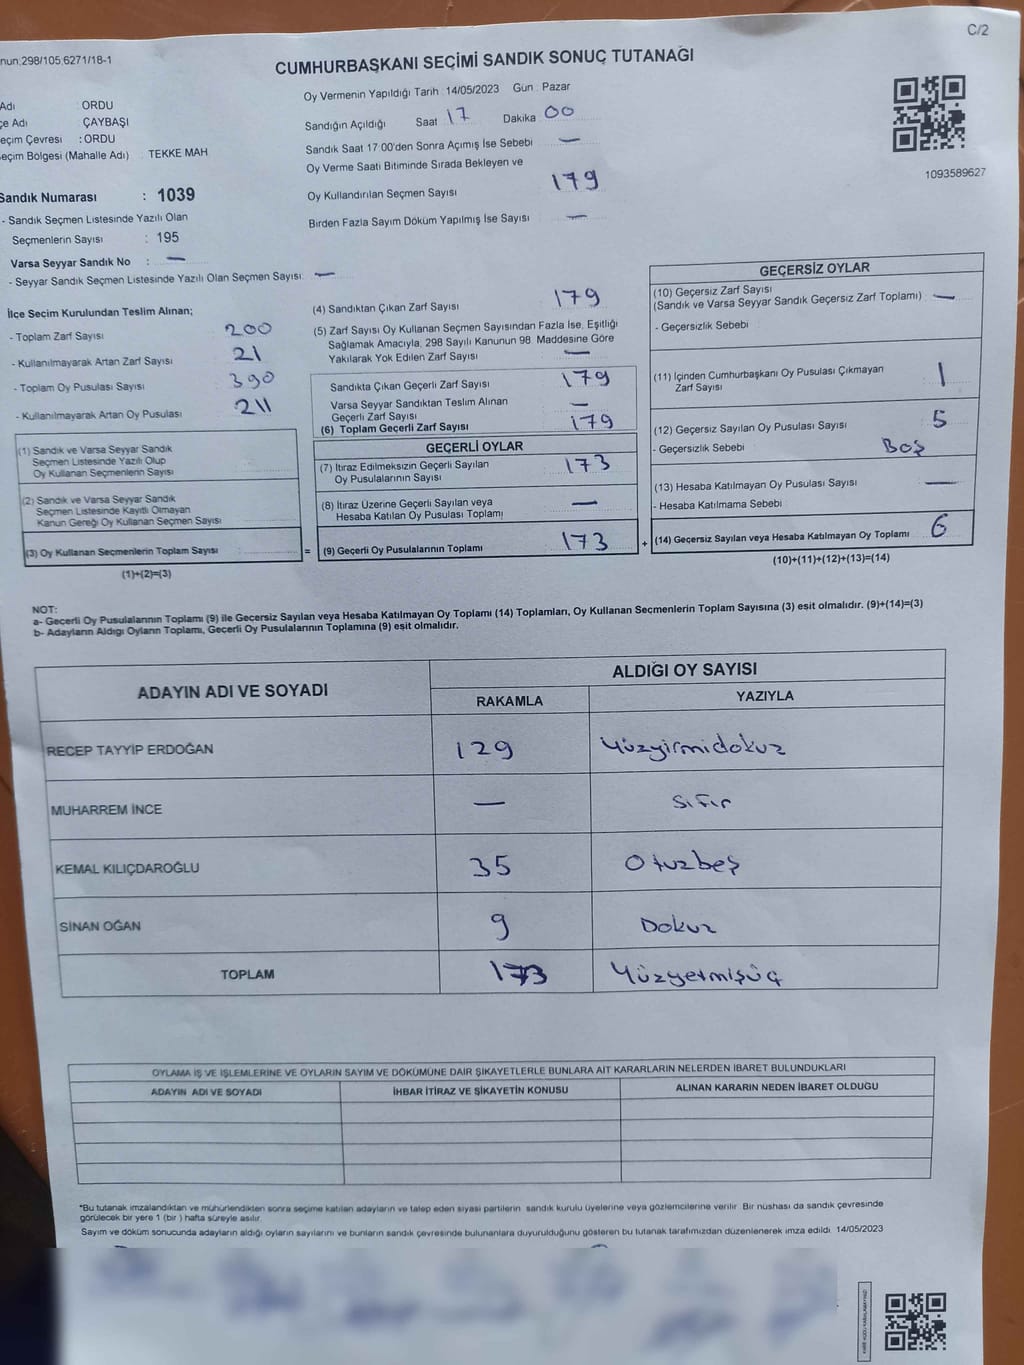 C/2
nun:298/105,6271/18-1
CUMHURBAŞKANI SEÇİMİ SANDIK SONUÇ TUTANAĞI
Adı : ORDU
çe Adı : ÇAYBAŞI
eçim Çevresi : ORDU
eçim Bölgesi (Mahalle Adı) : TEKKE MAH
Sandık Numarası : 1039
- Sandık Seçmen Listesinde Yazılı Olan
Seçmenlerin Sayısı : 195
Varsa Seyyar Sandık No : —
- Seyyar Sandık Seçmen Listesinde Yazılı Olan Seçmen Sayısı: —
Oy Vermenin Yapıldığı Tarih : 14/05/2023 Gün : Pazar
Sandığın Açıldığı Saat 17 Dakika 00
Sandık Saat 17:00'den Sonra Açılmış İse Sebebi —
Oy Verme Saati Bitiminde Sırada Bekleyen ve
Oy Kullandırılan Seçmen Sayısı 179
Birden Fazla Sayım Döküm Yapılmış İse Sayısı —
1093589627
İlçe Seçim Kurulundan Teslim Alınan;
- Toplam Zarf Sayısı 200
- Kullanılmayarak Artan Zarf Sayısı 21
- Toplam Oy Pusulası Sayısı 390
- Kullanılmayarak Artan Oy Pusulası 211
(1) Sandık ve Varsa Seyyar Sandık
Seçmen Listesinde Yazılı Olup
Oy Kullanan Seçmenlerin Sayısı
(2) Sandık ve Varsa Seyyar Sandık
Seçmen Listesinde Kayıtlı Olmayan
Kanun Gereği Oy Kullanan Seçmen Sayısı
(3) Oy Kullanan Seçmenlerin Toplam Sayısı
(1)+(2)=(3)
(4) Sandıktan Çıkan Zarf Sayısı 179
(5) Zarf Sayısı Oy Kullanan Seçmen Sayısından Fazla İse, Eşitliği
Sağlamak Amacıyla, 298 Sayılı Kanunun 98. Maddesine Göre
Yakılarak Yok Edilen Zarf Sayısı —
Sandıkta Çıkan Geçerli Zarf Sayısı 179
Varsa Seyyar Sandıktan Teslim Alınan
Geçerli Zarf Sayısı —
(6) Toplam Geçerli Zarf Sayısı 179
GEÇERLİ OYLAR
(7) İtiraz Edilmeksizin Geçerli Sayılan
Oy Pusulalarının Sayısı 173
(8) İtiraz Üzerine Geçerli Sayılan veya
Hesaba Katılan Oy Pusulası Toplamı —
= (9) Geçerli Oy Pusulalarının Toplamı 173
GEÇERSİZ OYLAR
(10) Geçersiz Zarf Sayısı
(Sandık ve Varsa Seyyar Sandık Geçersiz Zarf Toplamı) : —
- Geçersizlik Sebebi
(11) İçinden Cumhurbaşkanı Oy Pusulası Çıkmayan
Zarf Sayısı 1
(12) Geçersiz Sayılan Oy Pusulası Sayısı 5
- Geçersizlik Sebebi Boş
(13) Hesaba Katılmayan Oy Pusulası Sayısı —
- Hesaba Katılmama Sebebi
+ (14) Geçersiz Sayılan veya Hesaba Katılmayan Oy Toplamı 6
(10)+(11)+(12)+(13)=(14)
NOT:
a- Geçerli Oy Pusulalarının Toplamı (9) ile Geçersiz Sayılan veya Hesaba Katılmayan Oy Toplamı (14) Toplamları, Oy Kullanan Seçmenlerin Toplam Sayısına (3) eşit olmalıdır. (9)+(14)=(3)
b- Adayların Aldığı Oyların Toplamı, Geçerli Oy Pusulalarının Toplamına (9) eşit olmalıdır.
ADAYIN ADI VE SOYADI ALDIĞI OY SAYISI
RAKAMLA YAZIYLA
RECEP TAYYİP ERDOĞAN 129 Yüzyirmidokuz
MUHARREM İNCE — Sıfır
KEMAL KILIÇDAROĞLU 35 Otuzbeş
SİNAN OĞAN 9 Dokuz
TOPLAM 173 Yüzyetmişüç
OYLAMA İŞ VE İŞLEMLERİNE VE OYLARIN SAYIM VE DÖKÜMÜNE DAİR ŞİKAYETLERLE BUNLARA AİT KARARLARIN NELERDEN İBARET BULUNDUKLARI
ADAYIN ADI VE SOYADI İHBAR İTİRAZ VE ŞİKAYETİN KONUSU ALINAN KARARIN NEDEN İBARET OLDUĞU
*Bu tutanak imzalandıktan ve mühürlendikten sonra seçime katılan adayların ve talep eden siyasi partilerin sandık kurulu üyelerine veya gözlemcilerine verilir. Bir nüshası da sandık çevresinde
görülecek bir yere 1 (bir ) hafta süreyle asılır.
Sayım ve döküm sonucunda adayların aldığı oyların sayılarını ve bunların sandık çevresinde bulunanlara duyurulduğunu gösteren bu tutanak tarafımızdan düzenlenerek imza edildi. 14/05/2023